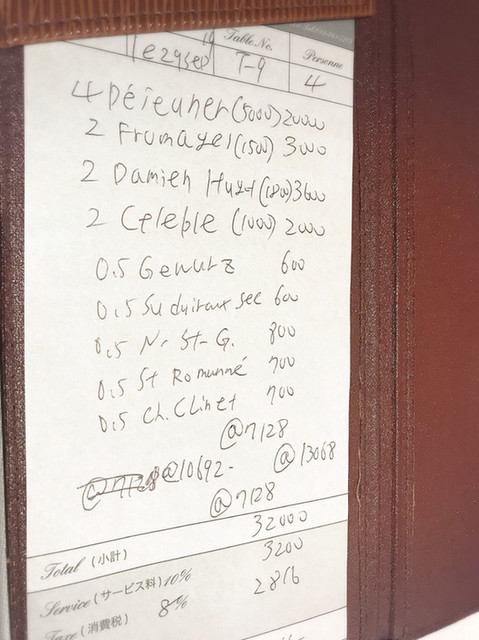 Table No. Personne
T-9 4
4 Déjeuner (5000) 20000
2 Fromages (1500) 3000
2 Damien Hugot (1800) 3600
2 Celeble (1000) 2000
0.5 Gewurz 600
0.5 Suduiraut sec 600
0.5 N-St-G. 800
0.5 St Romanné 700
0.5 Ch. Clinet 700
@7128
@7128 @10692- @13068
@7128
Total (小計) 32000
Service (サービス料) 10% 3200
Taxe (消費税) 8% 2816